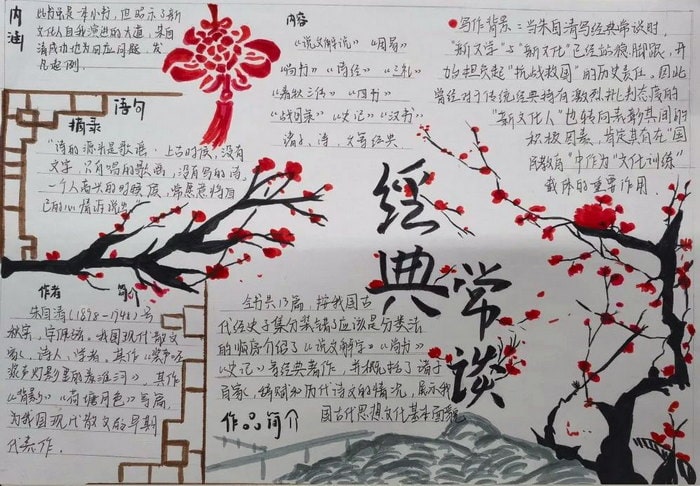 内涵
此书虽是一本小书，但昭示了新
文化人自我演进的大道，朱自
清成功地为回应问题，发
凡起例。
语句
摘录
"诗的源头是歌谣，上古时候，没有
文字，只有唱的歌谣，没有写的诗。
一个人高兴的时候
己的心情诉说出"
作者 简介
朱自清（1898-1948）号
秋实，字佩弦。我国现代散文
家，诗人，学者，其作《桨声
灯影里的秦淮河》，其作
《背影》《荷塘月色》等篇，
为我国现代散文的早期
代表作。
内容
《说文解说》《周易》
《尚书》《诗经》《三礼》
《春秋三传》《四书》
《战国策》《史记》《汉书》
诸子，诗，文等经典
写作背景：当朱自清写经典常谈时，
"新文学"与"新文化"已经站稳脚跟，开
始担负起"抗战救国"的历史责任。因此
曾经对于传统经典持有激烈批判态度的
"新文化人"也转向承认其间的
积极因素，肯定其有在"国
民教育"中作为"文化训练"
载体的重要作用。
經典常谈
全书共13篇，按我国古
代经史子集分类
的顺序介绍了《说文解字》《尚书》
《史记》等经典著作，并概括了诸子
百家，辞赋和历代诗文的情况，展示我
国古代思想文化基本面貌
作品简介